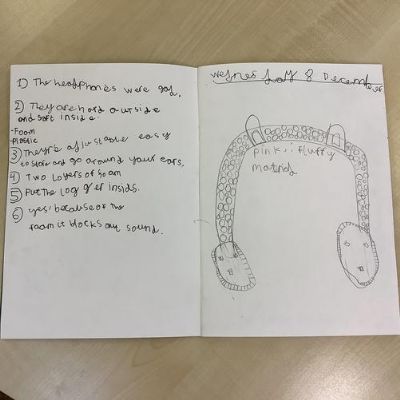 1) The headphones were god.
2) They are hard outside
and soft inside.
-Foam
Plastic
3) They're ajustable easy
to store and go around your ears.
4) Two layers of foam
5) Put the log er inside.
6) yes! because of the
foam it blocks out sound.
Wesnesday 8 December
pink : fluffy
material